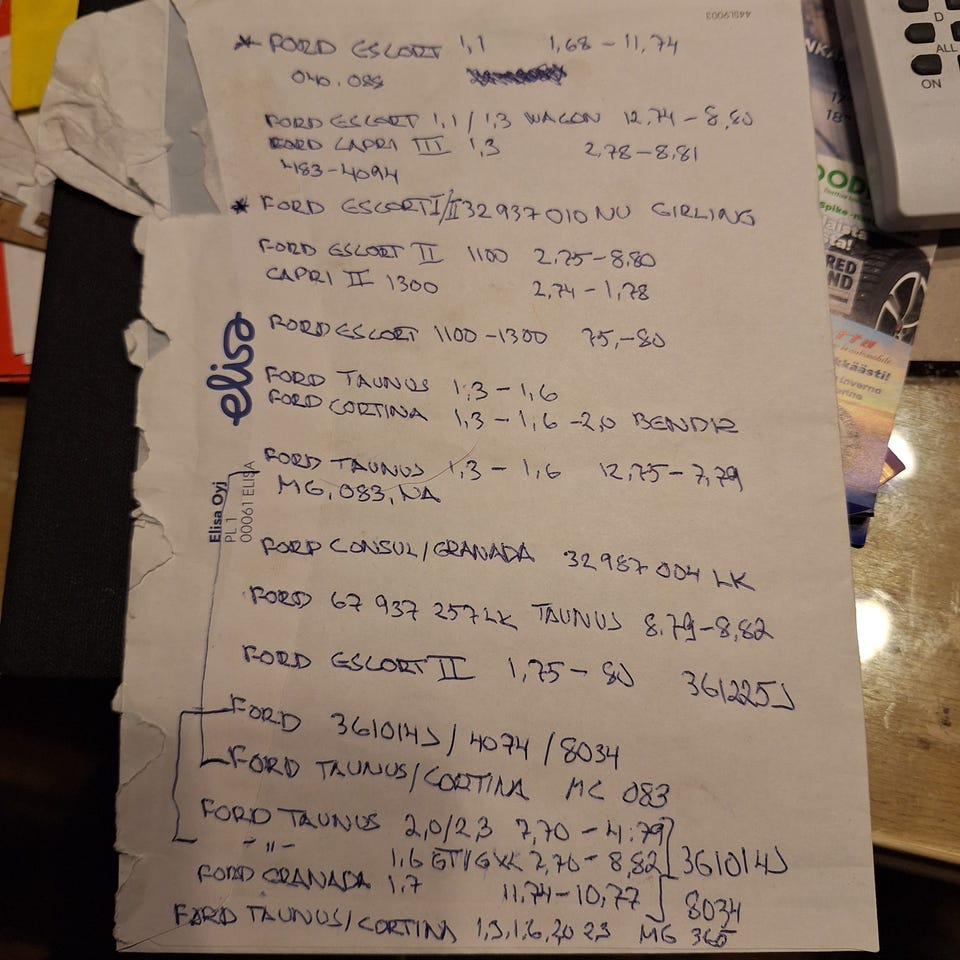 44SL9003
* FORD ESCORT 1,1 1,68 - 11,74
040.088
FORD ESCORT 1,1 / 1,3 WAGON 12,74 - 8,80
FORD CAPRI III 1,3 2,78 - 8,81
483-4094
* FORD ESCORT I/II 32 937 010 NU GIRLING
FORD ESCORT II 1100 2,75 - 8,80
CAPRI II 1300 2,74 - 1,78
FORD ESCORT 1100 - 1300 75, - 80
FORD TAUNUS 1,3 - 1,6
FORD CORTINA 1,3 - 1,6 - 2,0 BENDIX
FORD TAUNUS 1,3 - 1,6 12,75 - 7,79
MG, 083, NA
FORD CONSUL/GRANADA 32 987 004 LK
FORD 67 937 257 LK TAUNUS 8.79 - 8,82
FORD ESCORT II 1,75 - 80 361225J
FORD 361014J / 4074 / 8034
FORD TAUNUS/CORTINA MG 083
FORD TAUNUS 2,0/2,3 7,70 - 4.79
- " - 1,6 GT/GXL 2,76 - 8,82 361014J
FORD GRANADA 1,7 11,74 - 10,77 8034
FORD TAUNUS/CORTINA 1,3,1,6,20 23 MG 365
elisa
Elisa Oyj
PL 1
00061 ELISA
D
ALL
ON
18"
kkäästi!